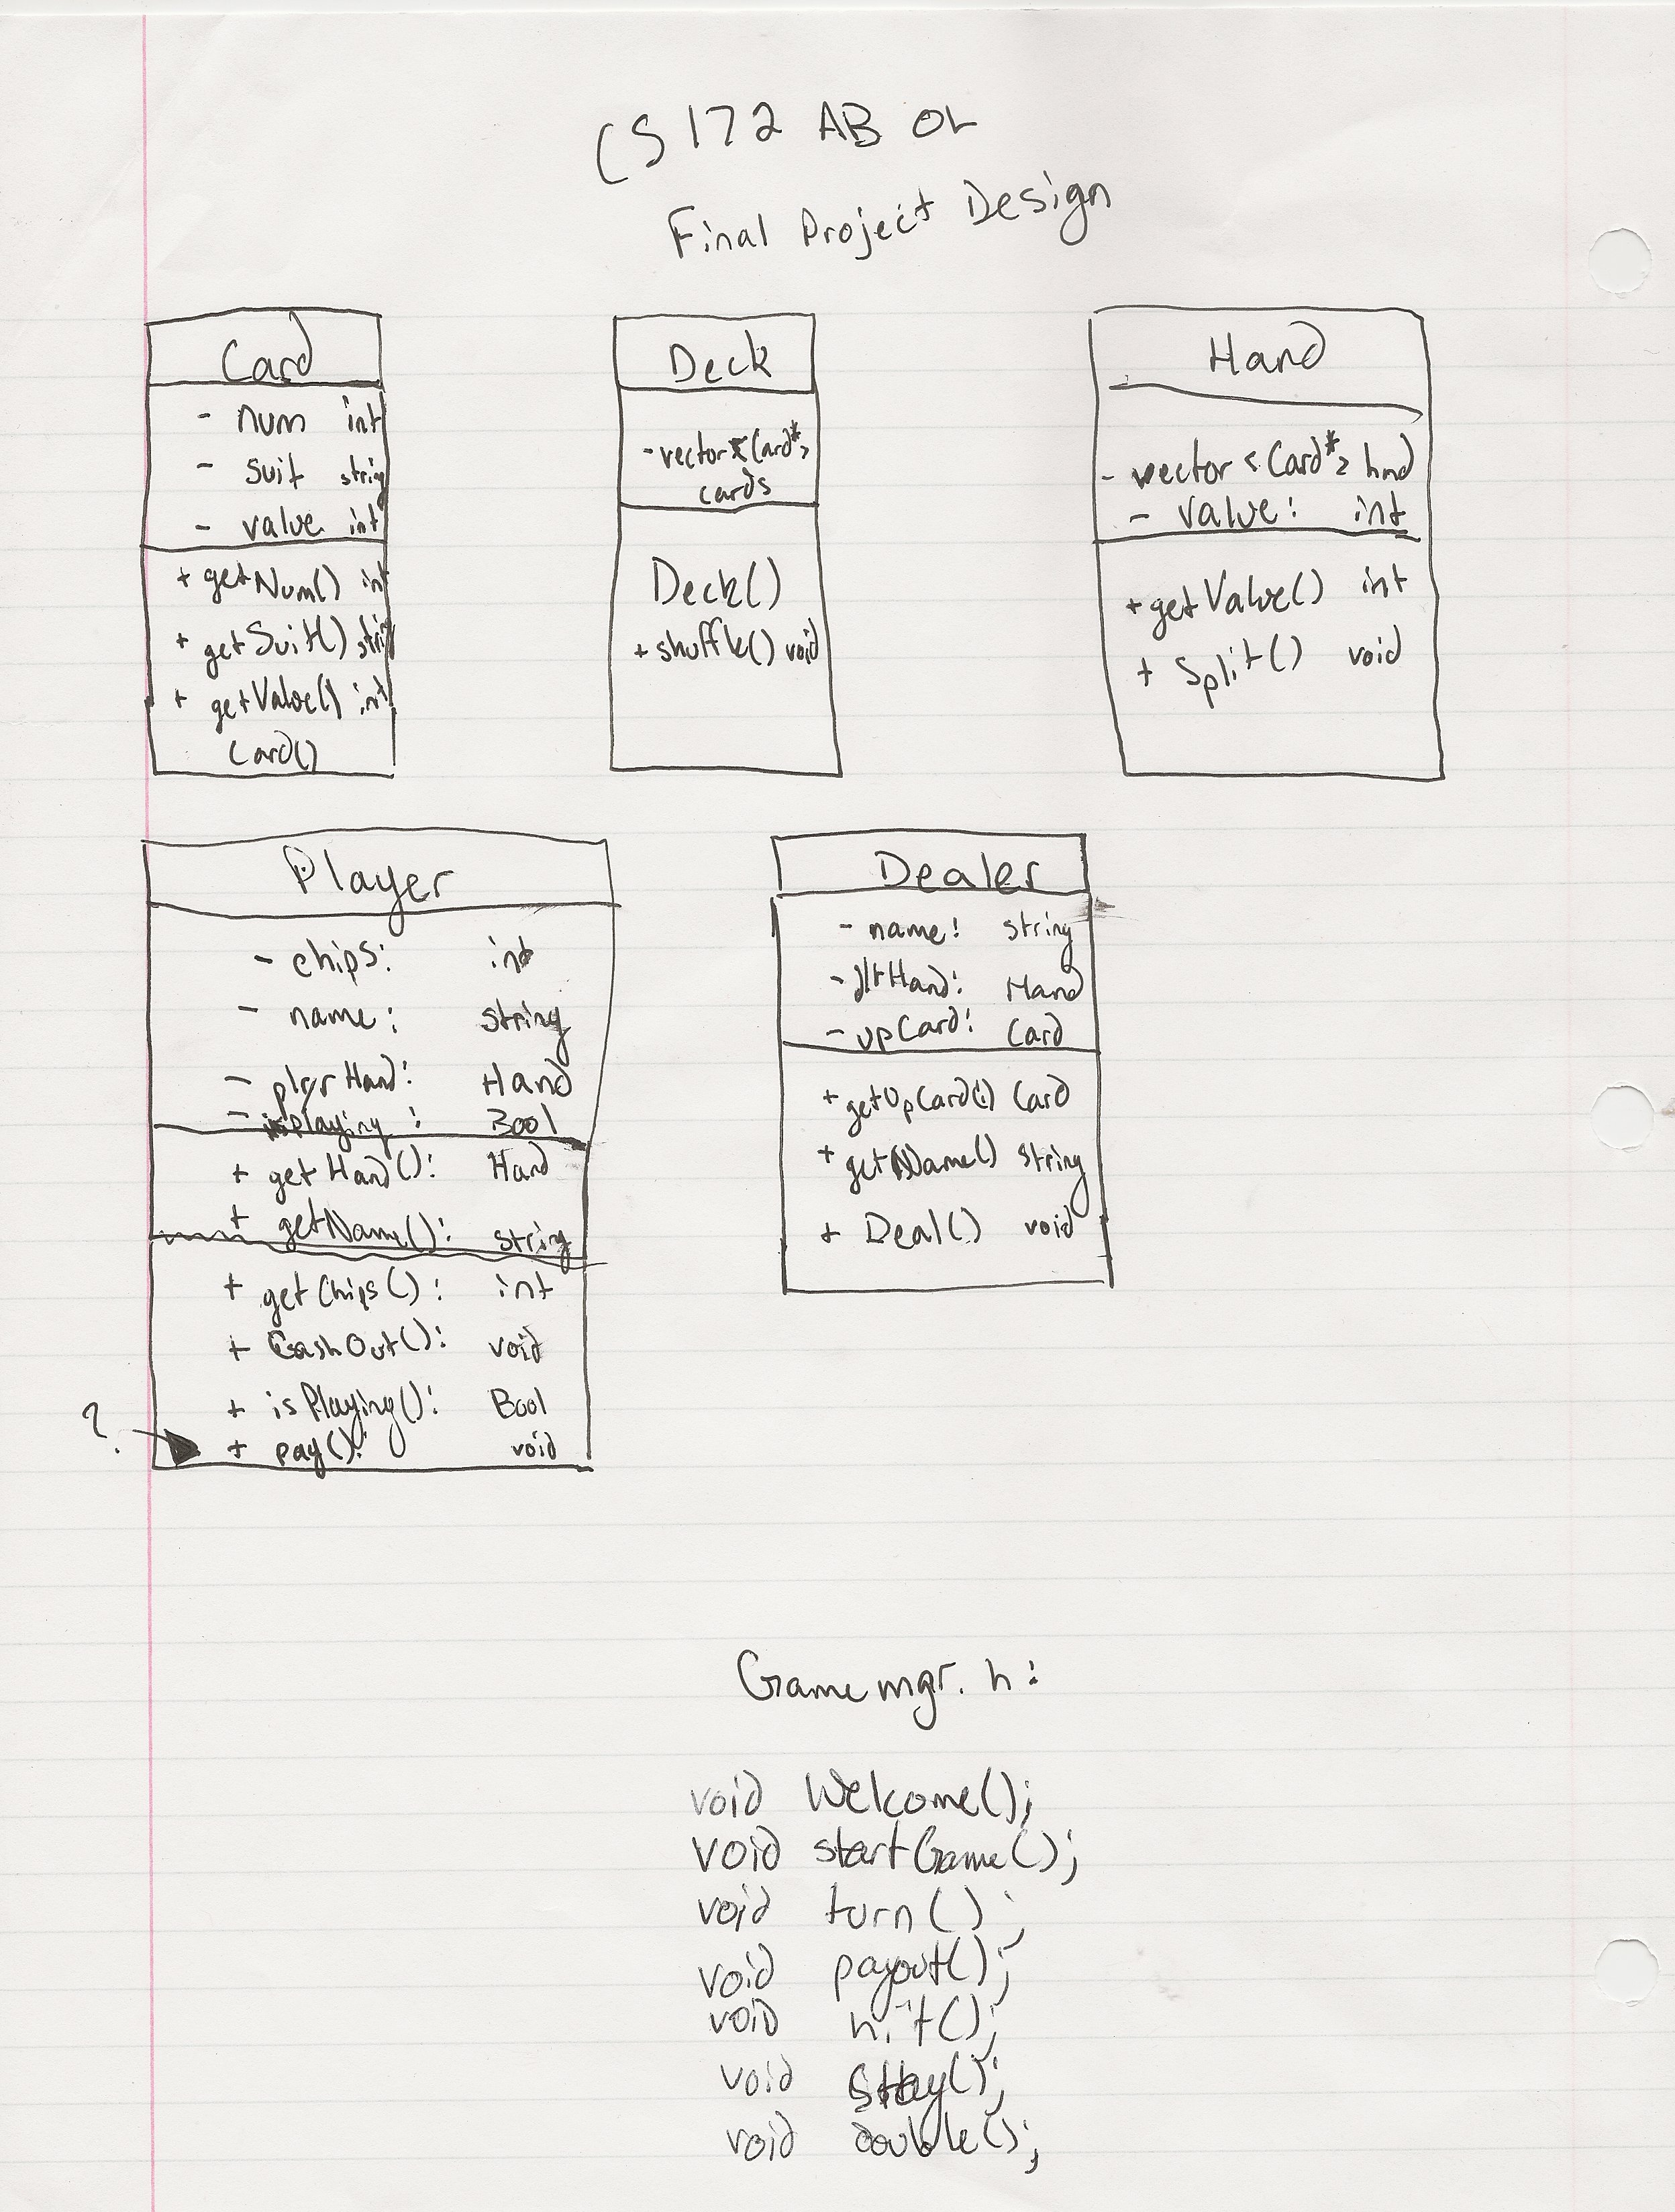 CS 172 AB OL
Final Project Design
Card
- num int
- suit string
- value int
+ getNum() int
+ getSuit() string
+ getValue() int
Card()
Deck
- vector<Card*>
cards
Deck()
+ shuffle() void
Hand
- vector<Card*> hnd
- value: int
+ getValue() int
+ Split() void
Player
- chips: int
- name: string
- plyrHand: Hand
- isPlaying: Bool
+ getHand(): Hand
+ getName(): string
+ getChips(): int
+ CashOut(): void
+ isPlaying(): Bool
? + pay(): void
Dealer
- name: string
- dlrHand: Hand
- upCard: Card
+ getUpCard() Card
+ getName() string
+ Deal() void
Gamemgr.h:
void Welcome();
void startGame();
void turn();
void payout();
void hit();
void stay();
void double();